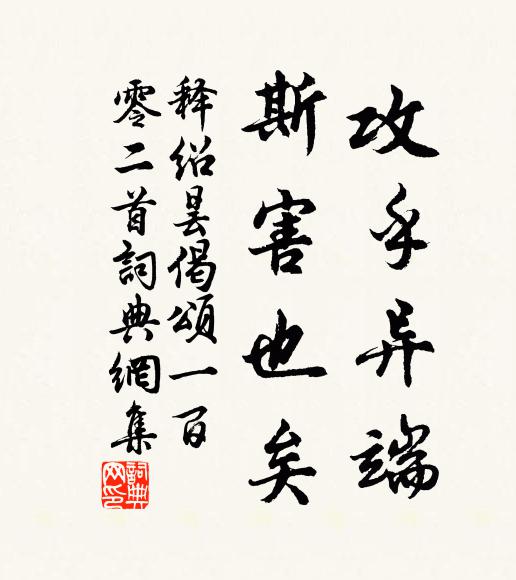 攻乎异端
斯害也矣
释绍昙偈頌一百
零二首詞典網集
詞典网印